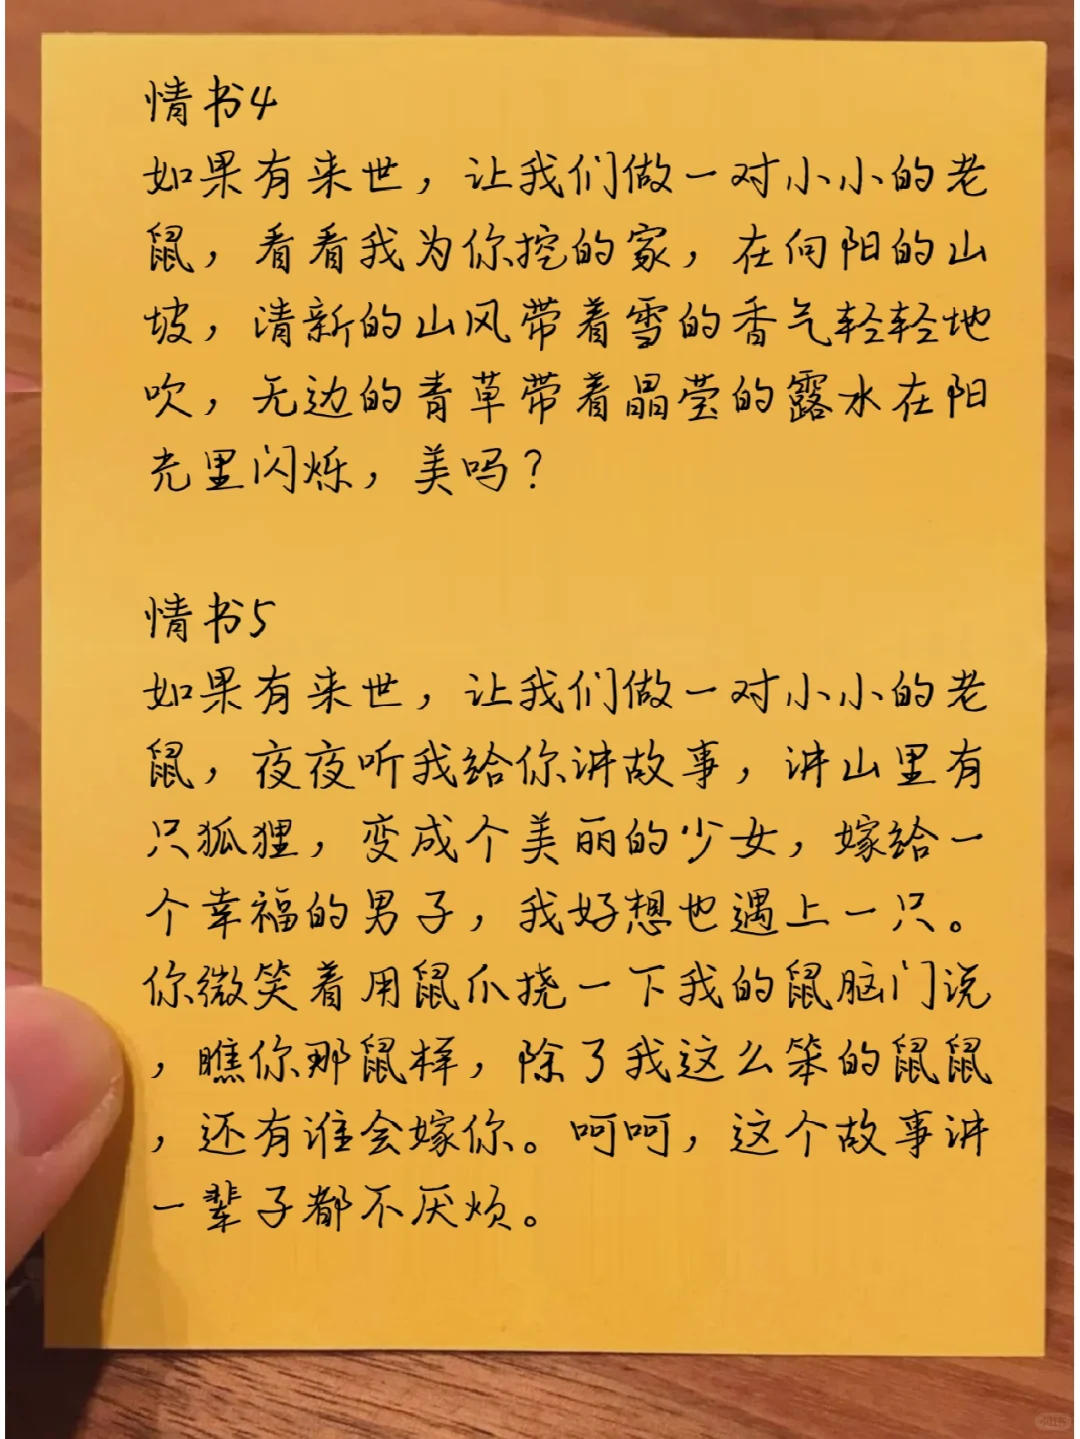 情书4
如果有来世，让我们做一对小小的老
鼠，看看我为你挖的家，在向阳的山
坡，清新的山风带着雪的香气轻轻地
吹，无边的青草带着晶莹的露水在阳
光里闪烁，美吗？
情书5
如果有来世，让我们做一对小小的老
鼠，夜夜听我给你讲故事，讲山里有
只狐狸，变成个美丽的少女，嫁给一
个幸福的男子，我好想也遇上一只。
你微笑着用鼠爪挠一下我的鼠脑门说
，瞧你那鼠样，除了我这么笨的鼠鼠
，还有谁会嫁你。呵呵，这个故事讲
一辈子都不厌烦。